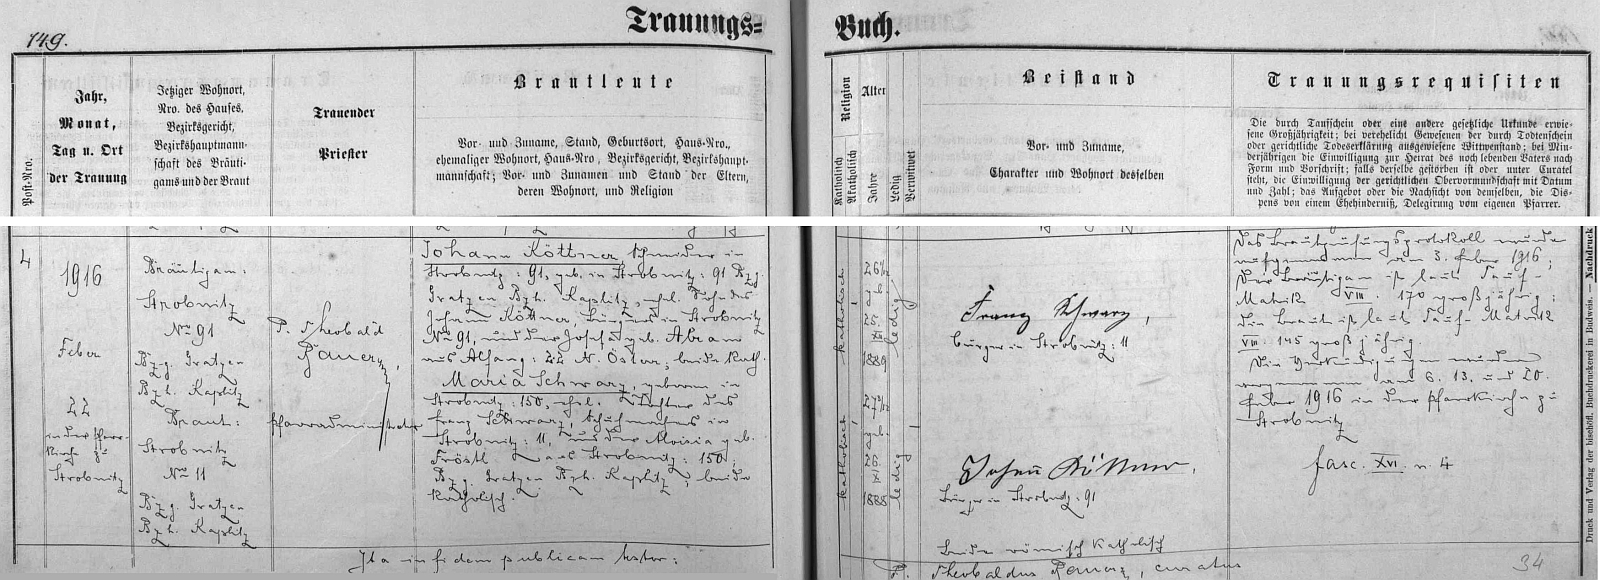 149.
Trauungs=
Buch.
Post-Nro.
Jahr,
Monat,
Tag u. Ort
der Trauung
Jetziger Wohnort,
Nro. des Hauses,
Bezirksgericht,
Bezirkshauptmann-
schaft des Bräuti-
gams und der Braut
Trauender
Priester
Brautleute
Vor- und Zuname, Stand, Geburtsort, Haus-Nro.,
ehemaliger Wohnort, Haus-Nro., Bezirksgericht, Bezirkshaupt-
mannschaft; Vor- und Zunamen und Stand der Eltern,
deren Wohnort, und Religion
Religion
Katholisch
Akatholisch
Alter
Jahre
Ledig
Verwitwet
Beistand
Vor- und Zuname,
Charakter und Wohnort desselben
Trauungsrequisiten
Die durch Taufschein oder eine andere gesetzliche Urkunde erwie-
sene Großjährigkeit; bei verehelicht Gewesenen der durch Todtenschein
oder gerichtliche Todeserklärung ausgewiesene Wittwenstand; bei Min-
derjährigen die Einwilligung zur Heirat des noch lebenden Vaters nach
Form und Vorschrift; falls derselbe gestorben ist oder unter Curatel
steht, die Einwilligung der gerichtlichen Obervormundschaft mit Datum
und Zahl; das Aufgebot oder die Nachsicht von demselben, die Dis-
pens von einem Ehehinderniß, Delegirung vom eigenen Pfarrer.
4
1916
Feber
22
in der Pfarr-
kirche zu
Strobnitz
Bräutigam:
Strobnitz
No 91
Bzg. Gratzen
Bzh. Kaplitz
Braut:
Strobnitz
No 11
Bzg. Gratzen
Bzh. Kaplitz
P. Theobald
pfarradministrator
Johann Köttner, Schneider in
Strobnitz: 91, geb. in Strobnitz: 91 Bzg.
Gratzen Bzh. Kaplitz, ehel. Sohn des
Johann Köttner, Bürgers in Strobnitz
No 91, und der Josefa geb. Abram
aus Alfang: 22 N. Östar; beide kath.
Maria Schwarz, geboren in
Strobnitz: 150, ehel. Tochter des
Franz Schwarz, Schuhmachers in
Strobnitz: 11, und der Aloisia geb.
Fröstl aus Strobnitz: 150,
Bzg. Gratzen Bzh. Kaplitz, beide
katholisch.
katholisch
26 1/12
geb.
25.
XII
1889
ledig
katholisch
27 3/12
geb.
26.
XI
1888
ledig
Franz Schwarz,
Bürger in Strobnitz: 11
Johann Köttner,
Bürger in Strobnitz: 91
beide römisch katholisch
Das Brautprüfungsprotokoll wurde
aufgenommen am 3. Feber 1916;
Der Bräutigam ist laut Tauf-
Matrik VIII. 170 großjährig;
die Braut ist laut Tauf-Matrik
VIII. 145 großjährig.
Die Verkündigungen wurden
vorgenommen am 6. 13. und 20.
Feber 1916 in der Pfarrkirche zu
Strobnitz
fasc. XVI. n. 4
Ita in fidem publicam testor:
P. Theobaldus
curatus
34
Druck und Verlag der bischöfl. Buchdruckerei in Budweis. — Nachdruck